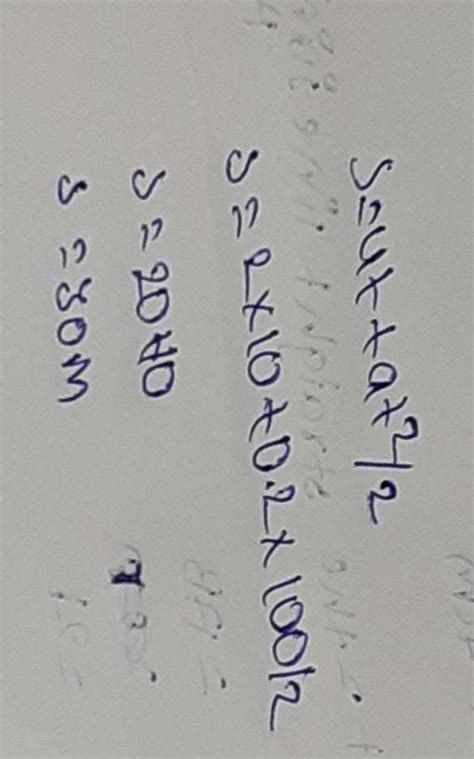 S = ut + at²/2
S = 2 × 10 + 0.2 × 100/2
S = 20+10
S = 30m